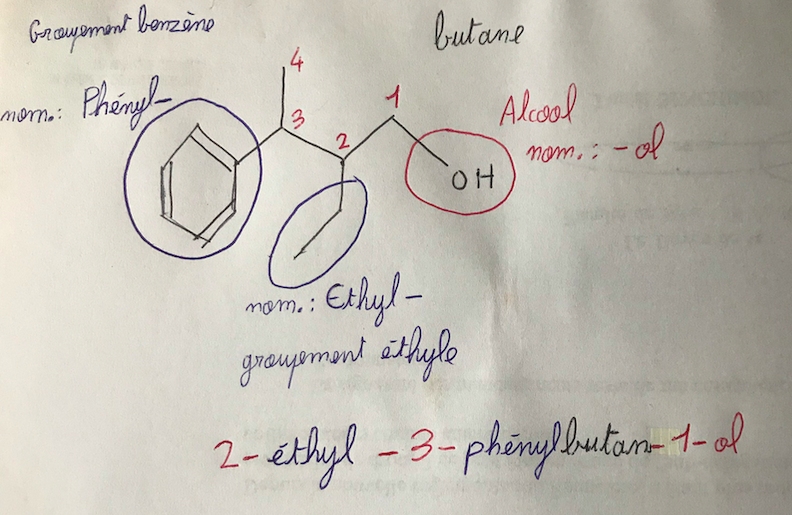 Groupement benzène
butane
nom.: Phényl-
4
3
2
1
Alcool
nom.: -ol
OH
nom.: Ethyl-
groupement éthyle
2-éthyl -3-phénylbutan-1-ol